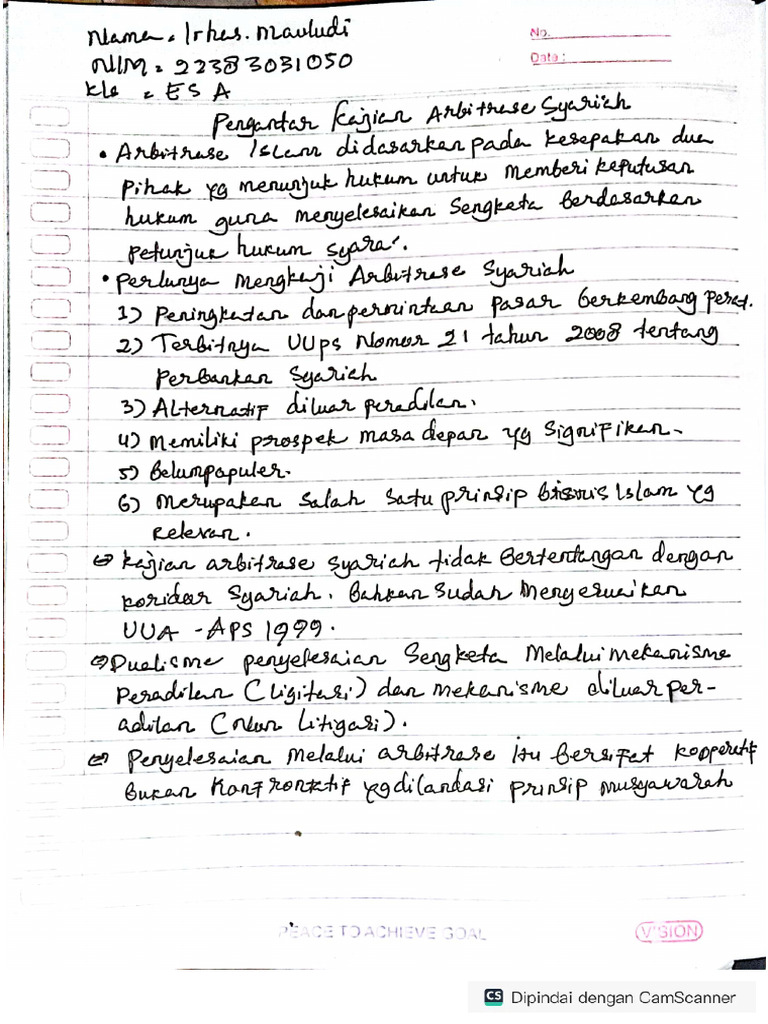 Nama = Irhas. Mauludi
No.
NIM = 22383031050
Date :
Kls = ES A
Pengantar Kajian Arbitrase Syariah
• Arbitrase Islam didasarkan pada kesepakan dua
pihak yg menunjuk hukum untuk memberi keputusan
hukum guna menyelesaikan sengketa berdasarkan
petunjuk hukum syara'.
• Perlunya mengkaji Arbitrase Syariah
1) Peningkatan dan permintaan pasar berkembang pesat.
2) Terbitnya UUPS Nomor 21 tahun 2008 tentang
Perbankan Syariah
3) Alternatif diluar peradilan.
4) Memiliki prospek masa depan yg signifikan-
5) Belum populer.
6) Merupakan salah satu prinsip bisnis Islam yg
relevan.
⇒ Kajian arbitrase syariah tidak bertentangan dengan
koridor syariah. Bahkan sudah menyesuaikan
UUA - APS 1999.
⇒ Dualisme penyelesaian sengketa melalui mekanisme
peradilan (ligitasi) dan mekanisme diluar per-
adilan (non litigasi).
⇒ Penyelesaian melalui arbitrase itu bersifat kooperatif
bukan konfrontatif yg dilandasi prinsip musyawarah
PEACE TO ACHIEVE GOAL
VISION
CS Dipindai dengan CamScanner